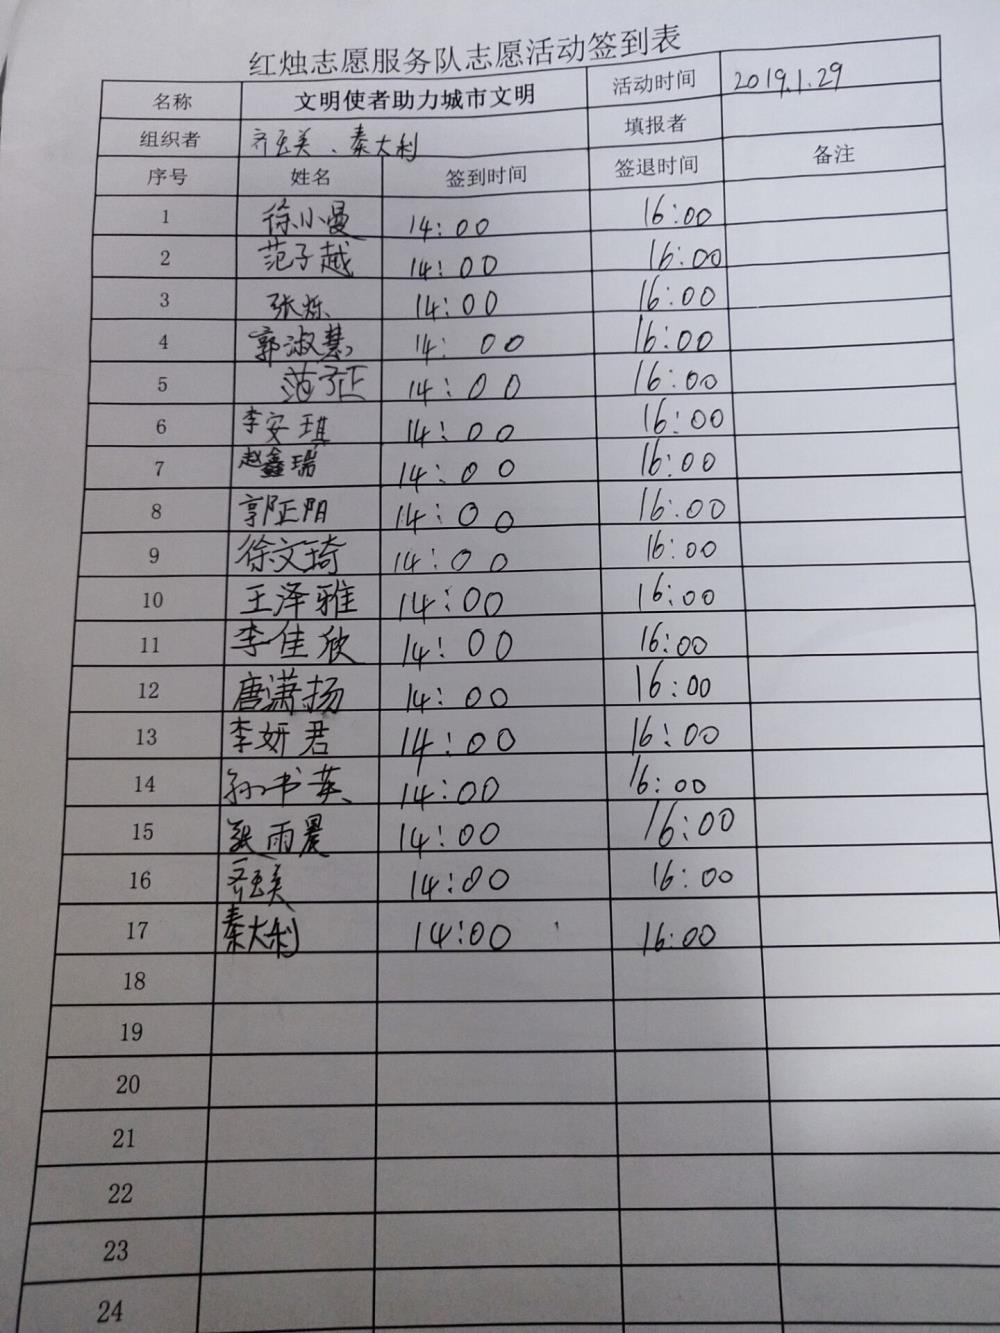 红烛志愿服务队志愿活动签到表
名称 文明使者助力城市文明 活动时间 2019.1.29
组织者 齐玉美、秦大利 填报者
序号 姓名 签到时间 签退时间 备注
1 徐小曼 14:00 16:00
2 范子越 14:00 16:00
3 张烁 14:00 16:00
4 郭淑慧 14:00 16:00
5 范子正 14:00 16:00
6 李安琪 14:00 16:00
7 赵鑫瑞 14:00 16:00
8 郭正阳 14:00 16:00
9 徐文琦 14:00 16:00
10 王泽雅 14:00 16:00
11 李佳欣 14:00 16:00
12 唐潇扬 14:00 16:00
13 李妍君 14:00 16:00
14 孙书英 14:00 16:00
15 张雨晨 14:00 16:00
16 齐玉美 14:00 16:00
17 秦大利 14:00 16:00
18
19
20
21
22
23
24